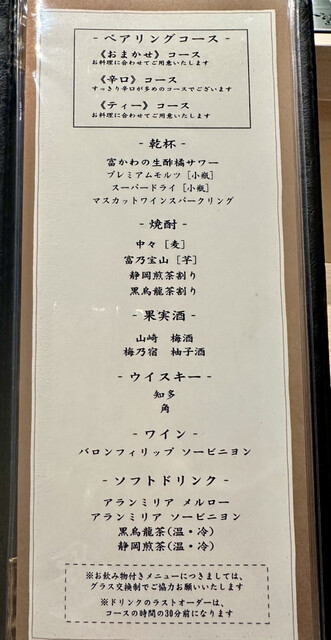 - ペアリングコース -
《おまかせ》コース
お料理に合わせてご用意いたします
《辛口》コース
すっきり辛口が多めのコースでございます
《ティー》コース
お料理に合わせてご用意いたします
- 乾杯 -
富かわの生酢橘サワー
プレミアムモルツ［小瓶］
スーパードライ［小瓶］
マスカットワインスパークリング
- 焼酎 -
中々［麦］
富乃宝山［芋］
静岡煎茶割り
黒烏龍茶割り
- 果実酒 -
山崎　梅酒
梅乃宿　柚子酒
- ウイスキー -
知多
角
- ワイン -
バロンフィリップ ソービニヨン
- ソフトドリンク -
アランミリア メルロー
アランミリア ソービニヨン
黒烏龍茶(温・冷)
静岡煎茶(温・冷)
※お飲み物付きメニューにつきましては、
グラス交換制でご協力お願いいたします
※ドリンクのラストオーダーは、
コースの時間の30分前になります